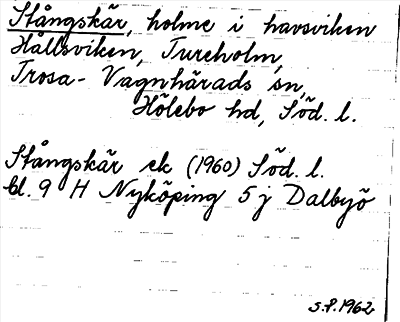 Stångskär, holme i havsviken
Hållsviken, Tureholm,
Trosa-Vagnhärads sn,
Hölebo hd, Söd. l.
Stångskär ek (1960) Söd. l.
bl. 9 H Nyköping 5 j Dalbyö
S.P. 1962